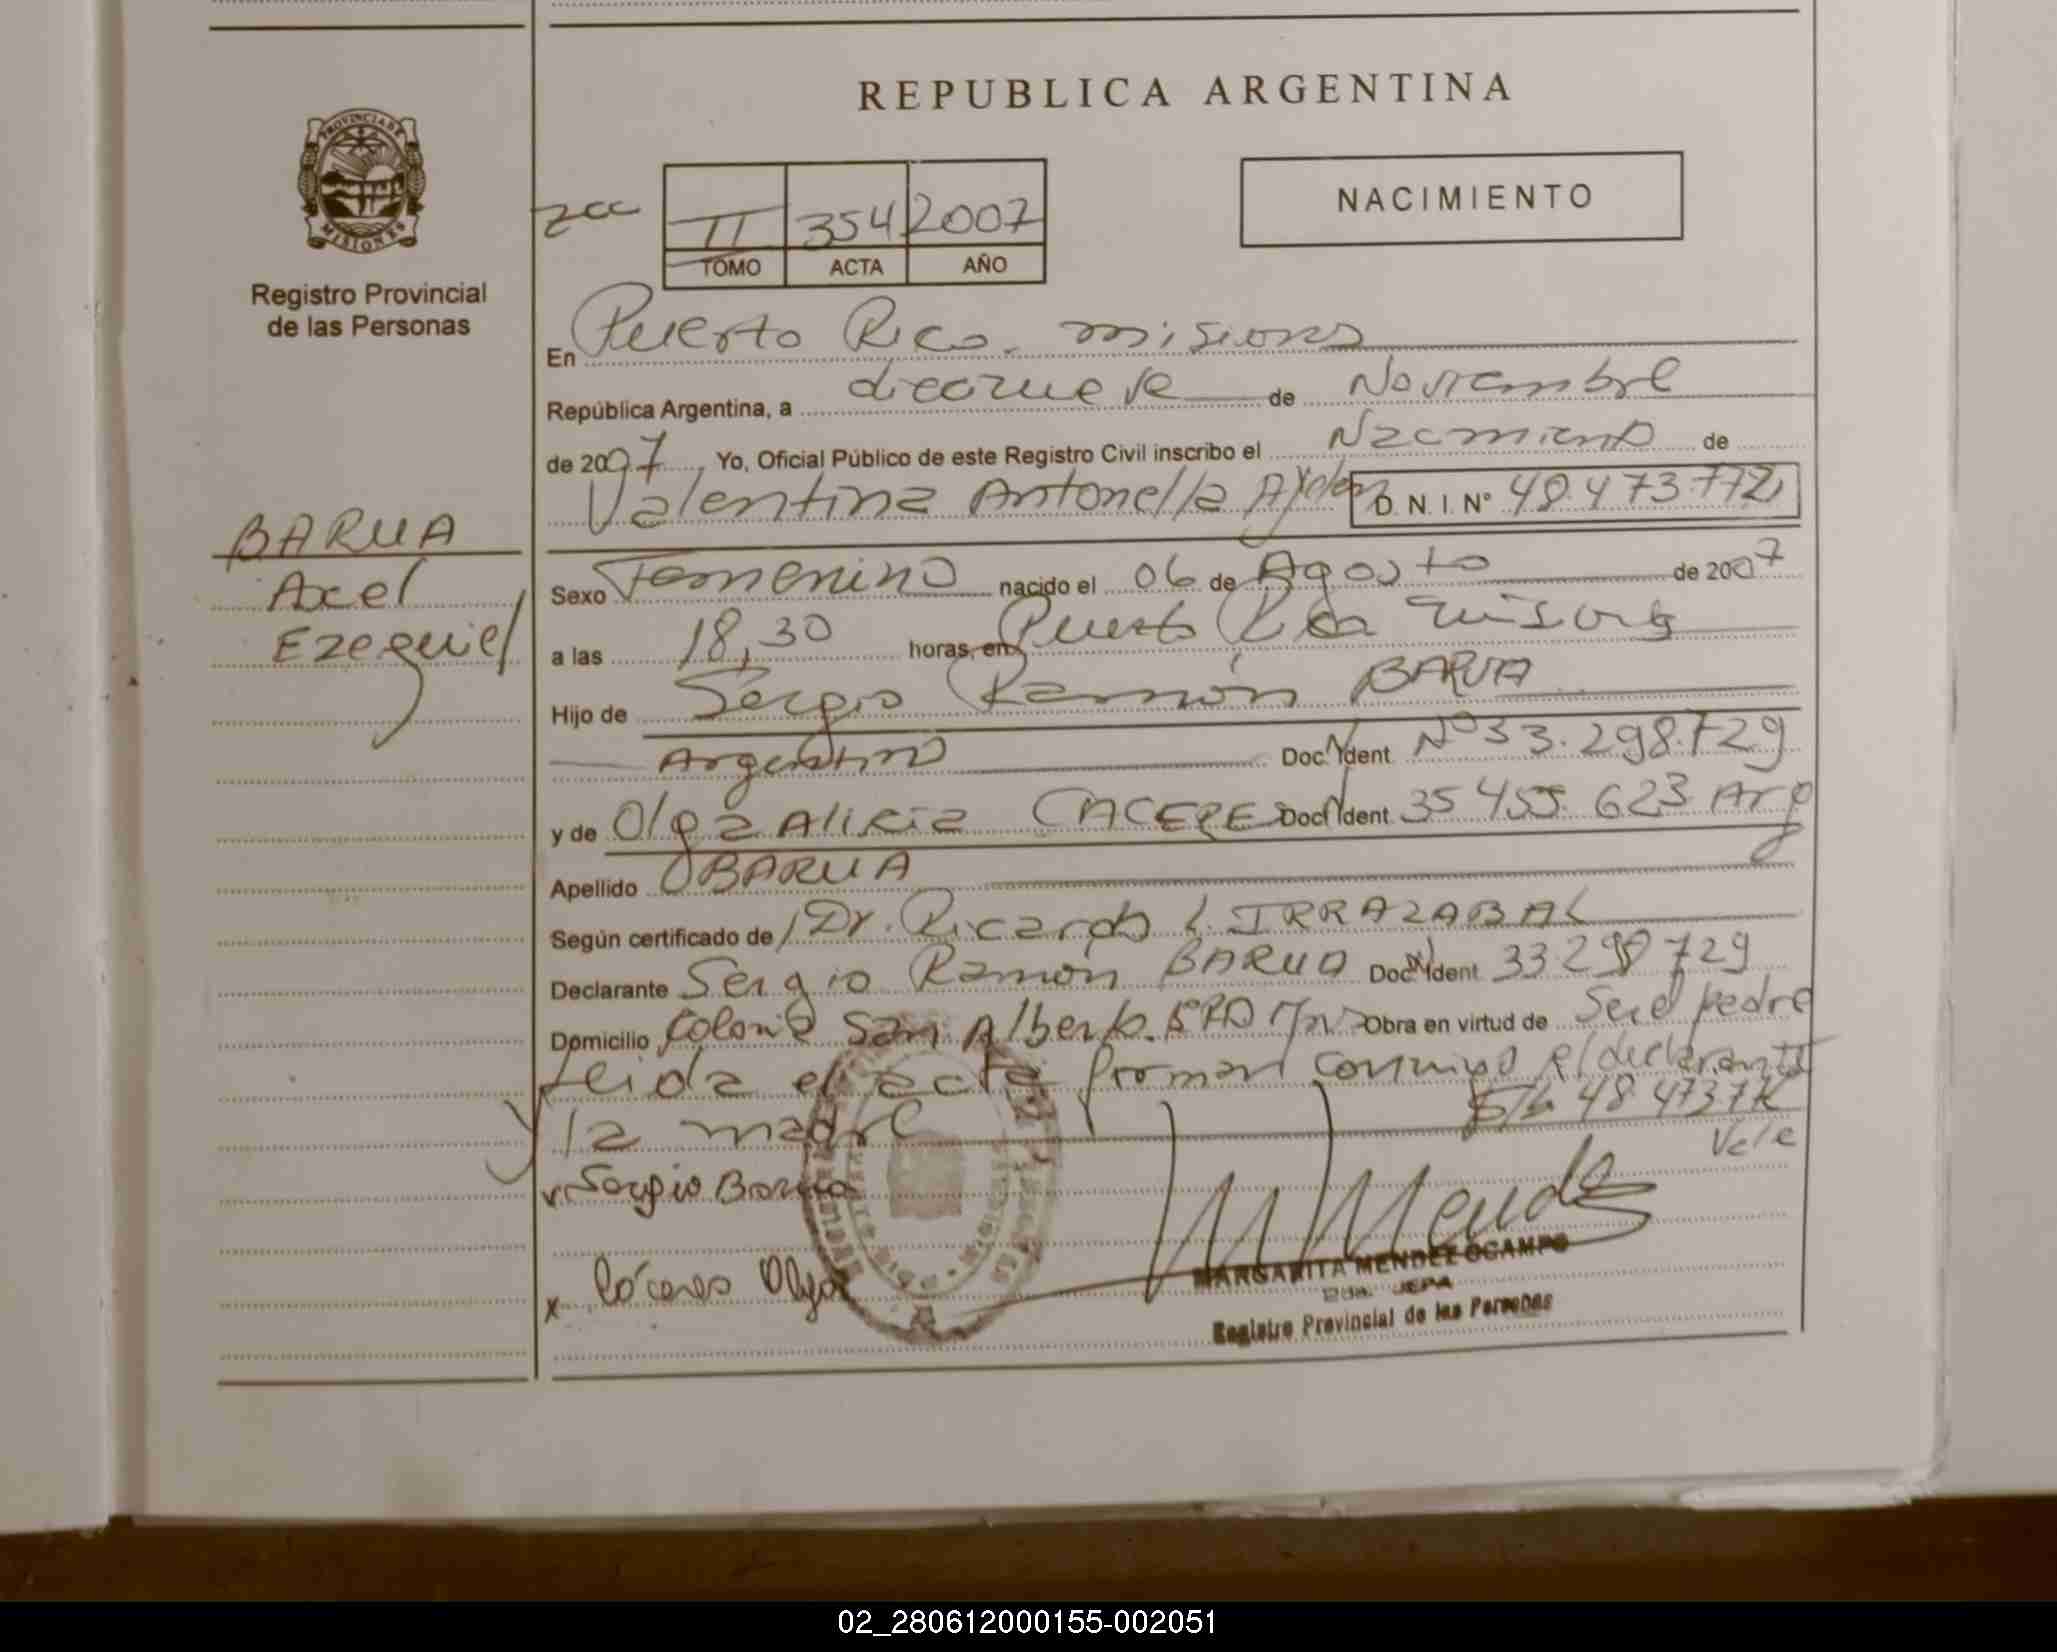 REPUBLICA ARGENTINA
PROVINCIA DE
MISIONES
Registro Provincial
de las Personas
II 354 2007
TOMO ACTA AÑO
NACIMIENTO
En Puerto Rico. misiones
República Argentina, a diecinueve de Noviembre
de 2007, Yo, Oficial Público de este Registro Civil inscribo el Nacimiento de
Valentina Antonella Aylen D. N. I. Nº 48.473.772
BARUA
Axel
Ezequiel
Sexo Femenino nacido el 06 de Agosto de 2007
a las 18,30 horas, en Puerto Rico misiones
Hijo de Sergio Ramón BARUA
Argentino Doc. Ident. Nº 33.298.729
y de Olga Alicia CACERES Doc. Ident. 35 455. 623 Arg
Apellido BARUA
Según certificado de Dr. Ricardo L. IRRAZABAL
Declarante Sergio Ramón BARUA Doc. Ident. 33 298 729
Domicilio Colonia San Alberto. Obra en virtud de Ser el padre
Leida el acta firman conmigo el declarante
y la madre
Vale
Sergio Barua
x Cáceres Olga
M Mendez
MARGARITA MENDEZ OCAMPO
JEFA
Registro Provincial de las Personas
02_280612000155-002051